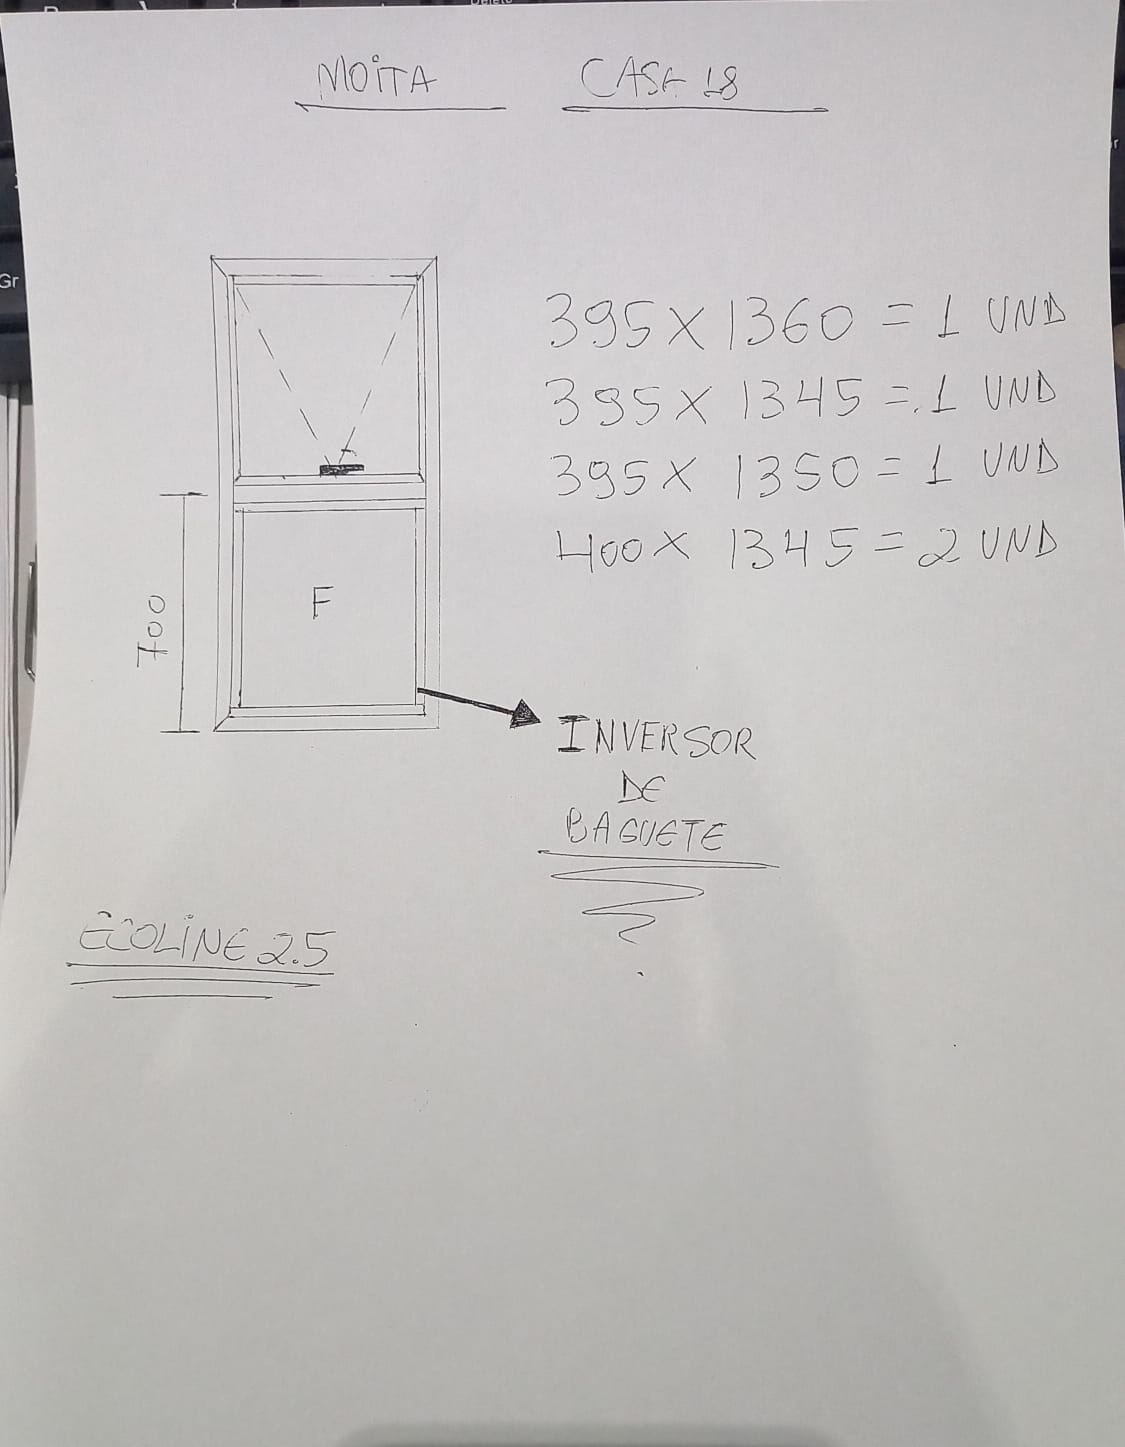 MOITA CASA 18
395 X 1360 = 1 UND
395 X 1345 = 1 UND
395 X 1350 = 1 UND
400 X 1345 = 2 UND
F
700
INVERSOR
DE
BAGUETE
ECOLINE 2.5
Gr